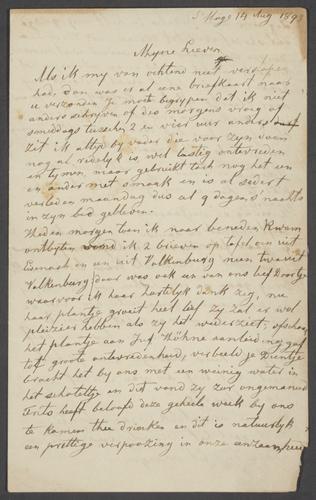 's Hage 14 Aug 1893
Myne Lieven
Als ik my van ochtend niet verslapen
had, dan was er al eene briefkaart naar
u verzonden Je moet begrypen dat ik niet
anders schryven of des morgens vroeg of
smiddags tusschen 2 en vier uur anders
zit ik altyd by vader die voor zyn doen
nog al redelyk is wel lastig ontevreden
en tymen, maar gebruikt toch nog het een
en ander met smaak en is al sedert
verleden maandag dus al 9 dagen snachts
in zyn bed gebleven.
Heden morgen toen ik naar beneden kwam
ontbyten vond ik 2 brieven op tafel een uit
Eisenach en een uit Valkenburg neen twee uit
Valkenburg, daar was ook een van ons lief Doortje
waarvoor ik haar hartelyk dank zeg, nu
haar plantje groeit heel lief zy zal er wel
pleizier hebben als zy het wederziet,
het plantje aan Juf Höhne aanleiding gaf
tot groote ontevredenheid, verbeeld je Dientje
bracht het by ons met een weinig water in
het schoteltje en dit vond zy zoo ongemanierd
heeft beloofd deze geheele week by ons
te komen thee drinken en dit is natuurlyk
een prettige verpoozing in onze eenzaamheid